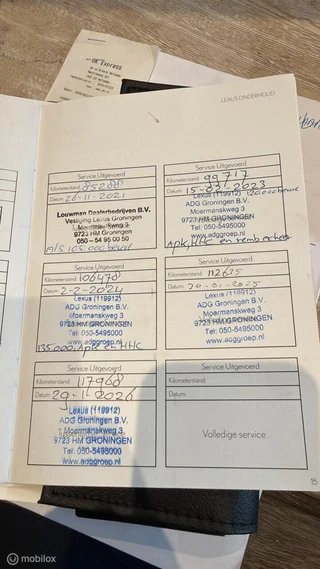 Express
LEXUS ONDERHOUD
Service Uitgevoerd
Kilometerstand: 85288
Datum: 26-11-2021
Louwman Dealerbedrijven B.V.
Vestiging Lexus Groningen
Moermanskweg 3
9723 HM Groningen
050 – 54 95 00 50
Als 105.000 beurt
Service Uitgevoerd
Kilometerstand: 99717
Datum: 15-02-2023
120.000 beurt
Lexus (119912)
ADG Groningen B.V.
Moermanskweg 3
9723 HM GRONINGEN
Tel: 050-5495000
www.adggroep.nl
Apk, HHC en
Service Uitgevoerd
Kilometerstand: 106478
Datum: 2-2-2024
Lexus (119912)
ADG Groningen B.V.
Moermanskweg 3
9723 HM GRONINGEN
Tel: 050-5495000
www.adggroep.nl
135.000, Apk en HHC
Service Uitgevoerd
Kilometerstand: 112635
Datum: 20-01-2025
Lexus (119912)
ADG Groningen B.V.
Moermanskweg 3
9723 HM GRONINGEN
Tel: 050-5495000
www.adggroep.nl
Service Uitgevoerd
Kilometerstand: 117968
Datum: 29-1-2026
Lexus (119912)
ADG Groningen B.V.
Moermanskweg 3
9723 HM GRONINGEN
Tel: 050-5495000
www.adggroep.nl
Service Uitgevoerd
Kilometerstand:
Datum:
Volledige service
15
mobilox